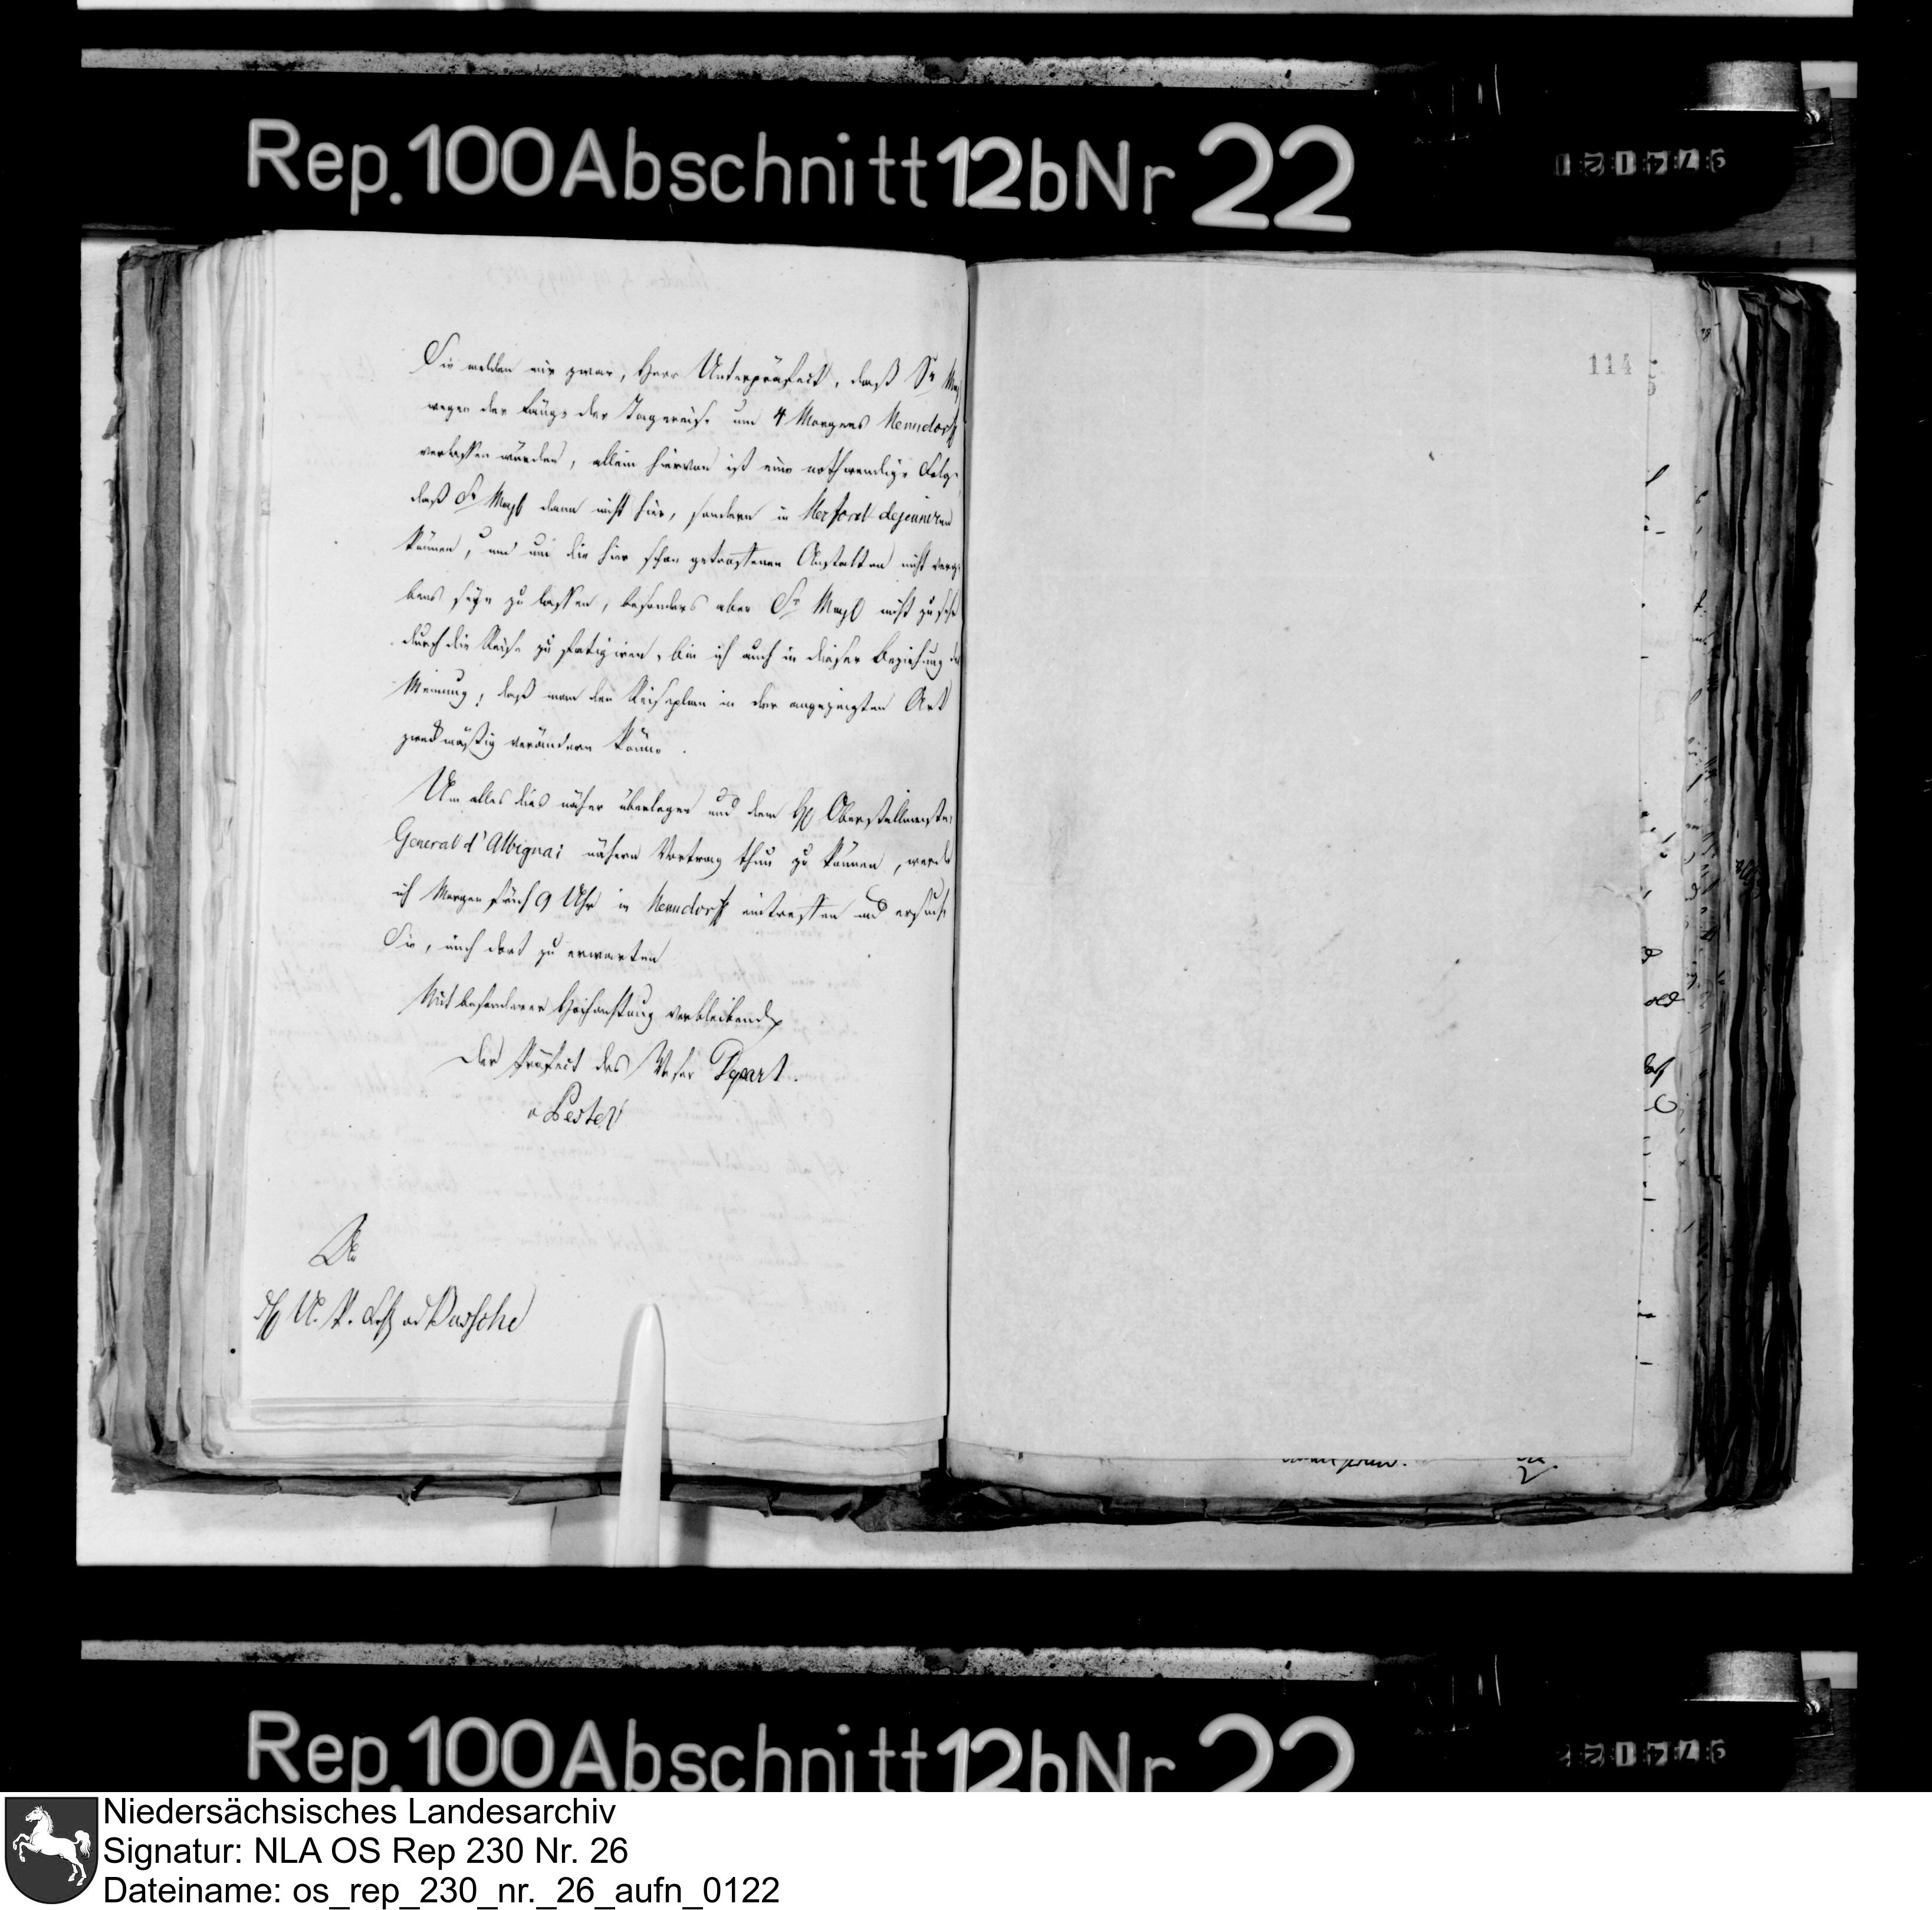 Rep. 100 Abschnitt 12b Nr 22
114
Sie melden mir zwar, Herr Unterpräfect, daß Sr Maj
wegen der Länge der Tagereise um 4 Morgens Nenndorff
verlassen würden, allein hiervon ist eine nothwendige Folge
daß Sr Majt dann nicht hier, sondern in Herford dejeuniren
können, und um die hier schon getroffenen Anstalten nicht verge
bens seyn zu lassen, besonders aber Sr Majt nicht zu sehr
durch die Reise zu fatigiren, bin ich auch in dieser Beziehung der
Meinung, daß man den Reiseplan in der angezeigten Art
zweckmäßig verändern könne.
Um alles dies näher überlegen und dem H Oberstallmeister
General d'Albignai nähern Vortrag thun zu können, werde
ich Morgen früh 9 Uhr in Nenndorff eintreffen und ersuche
Sie, mich dort zu erwarten
Mit besonderer Hochachtung verbleibend
Der Präfect des Weser Depart.
v Pestel
An
H U. P. v d Bussche
Rep. 100 Abschnitt 12b Nr 22
Niedersächsisches Landesarchiv
Signatur: NLA OS Rep 230 Nr. 26
Dateiname: os_rep_230_nr._26_aufn_0122